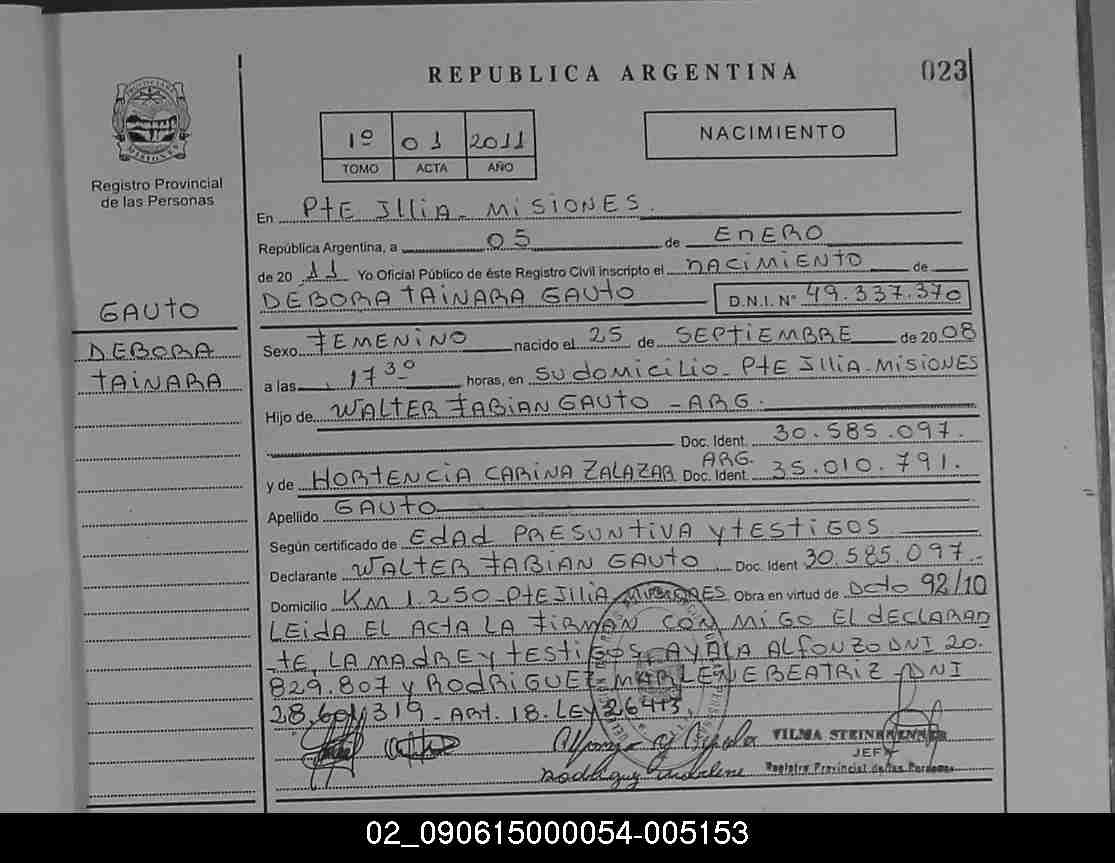 REPUBLICA ARGENTINA
023
PROVINCIA DE MISIONES
Registro Provincial
de las Personas
1º 01 2011
TOMO ACTA AÑO
NACIMIENTO
En PtE Illia - MISIONES.
República Argentina, a 05 de ENERO
de 20 11 Yo Oficial Público de éste Registro Civil inscripto el NACIMIENTO de
DEBORA TAINARA GAUTO D.N.I. Nº 49.337.370
GAUTO
DEBORA
TAINARA
Sexo FEMENINO nacido el 25 de SEPTIEMBRE de 20 08
a las 17 30 horas, en SU DOMICILIO - PtE Illia - MISIONES
Hijo de WALTER FABIAN GAUTO - ARG.
Doc. Ident. 30.585.097.
y de HORTENCIA CARINA ZALAZAR ARG. Doc. Ident. 35.010.791.
Apellido GAUTO
Según certificado de EDAD PRESUNTIVA Y TESTIGOS
Declarante WALTER FABIAN GAUTO Doc. Ident 30.585.097.-
Domicilio KM 1.250 - PtE Jllia MISIONES Obra en virtud de Dcto 92/10
LEIDA EL ACTA LA FIRMAN CON MIGO EL DECLARAN
TE, LA MADRE Y TESTIGOS, AYALA ALFONZO DNI 20.
829.807 Y RODRIGUEZ MARLENE BEATRIZ DNI
28.601.319 - ART. 18. LEY 26413.
Alfonzo Ayala
Rodriguez Marlene
VILMA STEINBRENNER
JEFE
Registro Provincial de las Personas
02_090615000054-005153